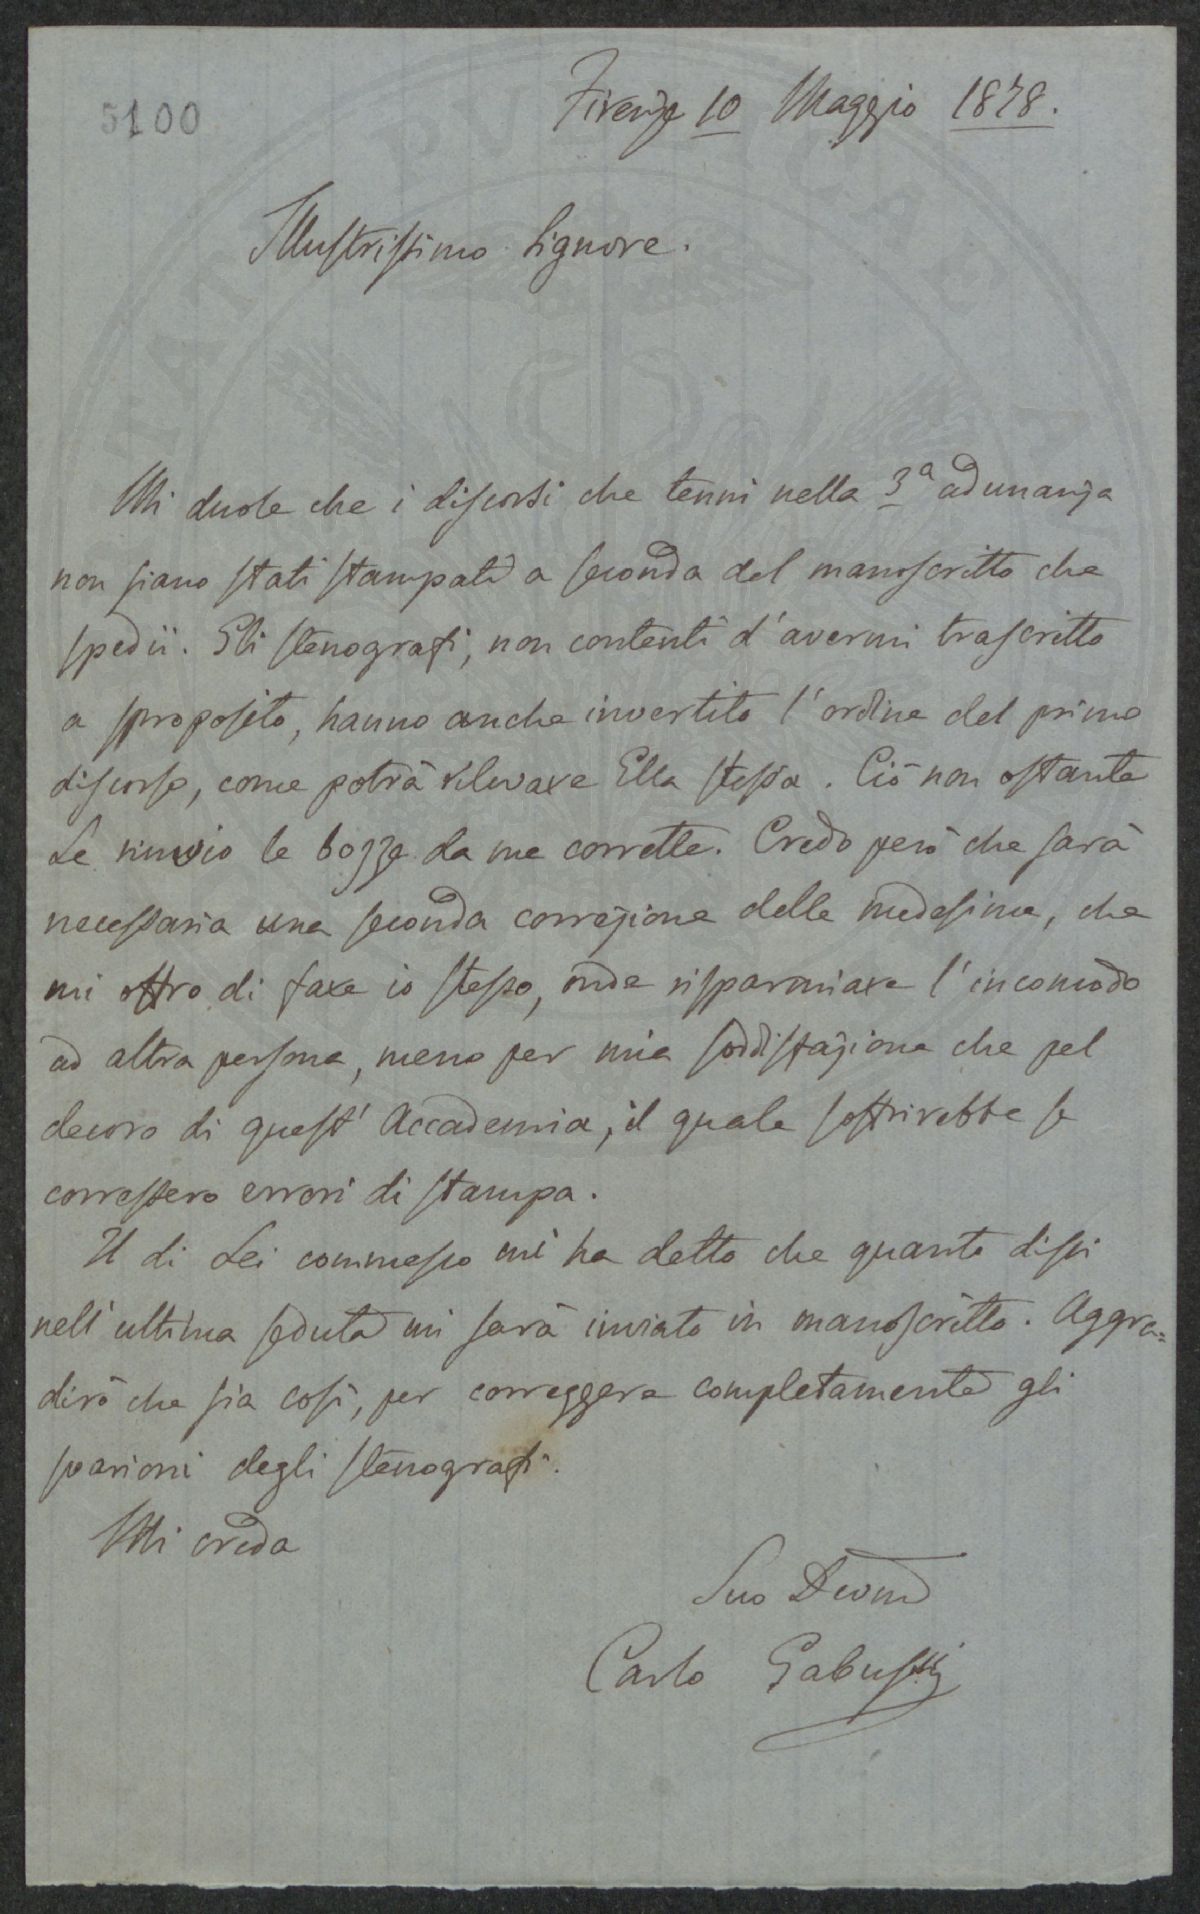 5100
Firenze 10 Maggio 1878.
Illustrissimo Signore.
Mi duole che i discorsi che tenni nella 3a adunanza
non siano stati stampati a seconda del manoscritto che
spedii. Gli stenografi, non contenti d'avermi trascritto
a sproposito, hanno anche invertito l'ordine del primo
discorso, come potrà rilevare Ella stessa. Ciò non ostante
Le rinvio le bozze da me corrette. Credo però che sarà
necessaria una seconda correzione delle medesime, che
mi offro di fare io stesso, onde risparmiare l'incomodo
ad altra persona, meno per mia soddisfazione che pel
decoro di quest'Accademia, il quale soffrirebbe se
corressero errori di stampa.
Il di Lei commesso mi ha detto che quanto dissi
nell'ultima seduta mi sarà inviato in manoscritto. Aggra=
dirò che sia così, per correggere completamente gli
svarioni degli stenografi.
Mi creda
Suo
Carlo Gabussi